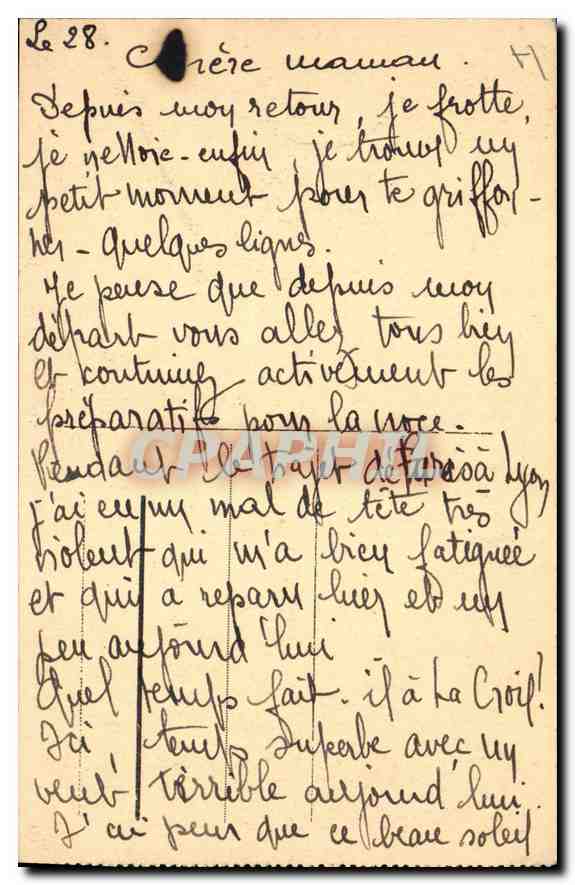 Le 28.
Chère maman.
Depuis mon retour, je frotte,
je nettoie - enfin, je trouve un
petit moment pour te griffon-
ner - quelques lignes.
Je pense que depuis mon
départ vous allez tous bien
et continuez activement les
préparatifs pour la noce.
Pendant le trajet de Paris à Lyon
j'ai eu un mal de tête très
violent qui m'a bien fatiguée
et qui a reparu hier et un
peu aujourd'hui
Quel temps fait-il à La Croix?
Ici, temps superbe avec un
vent terrible aujourd'hui.
J'ai peur que ce beau soleil
CPARHTI